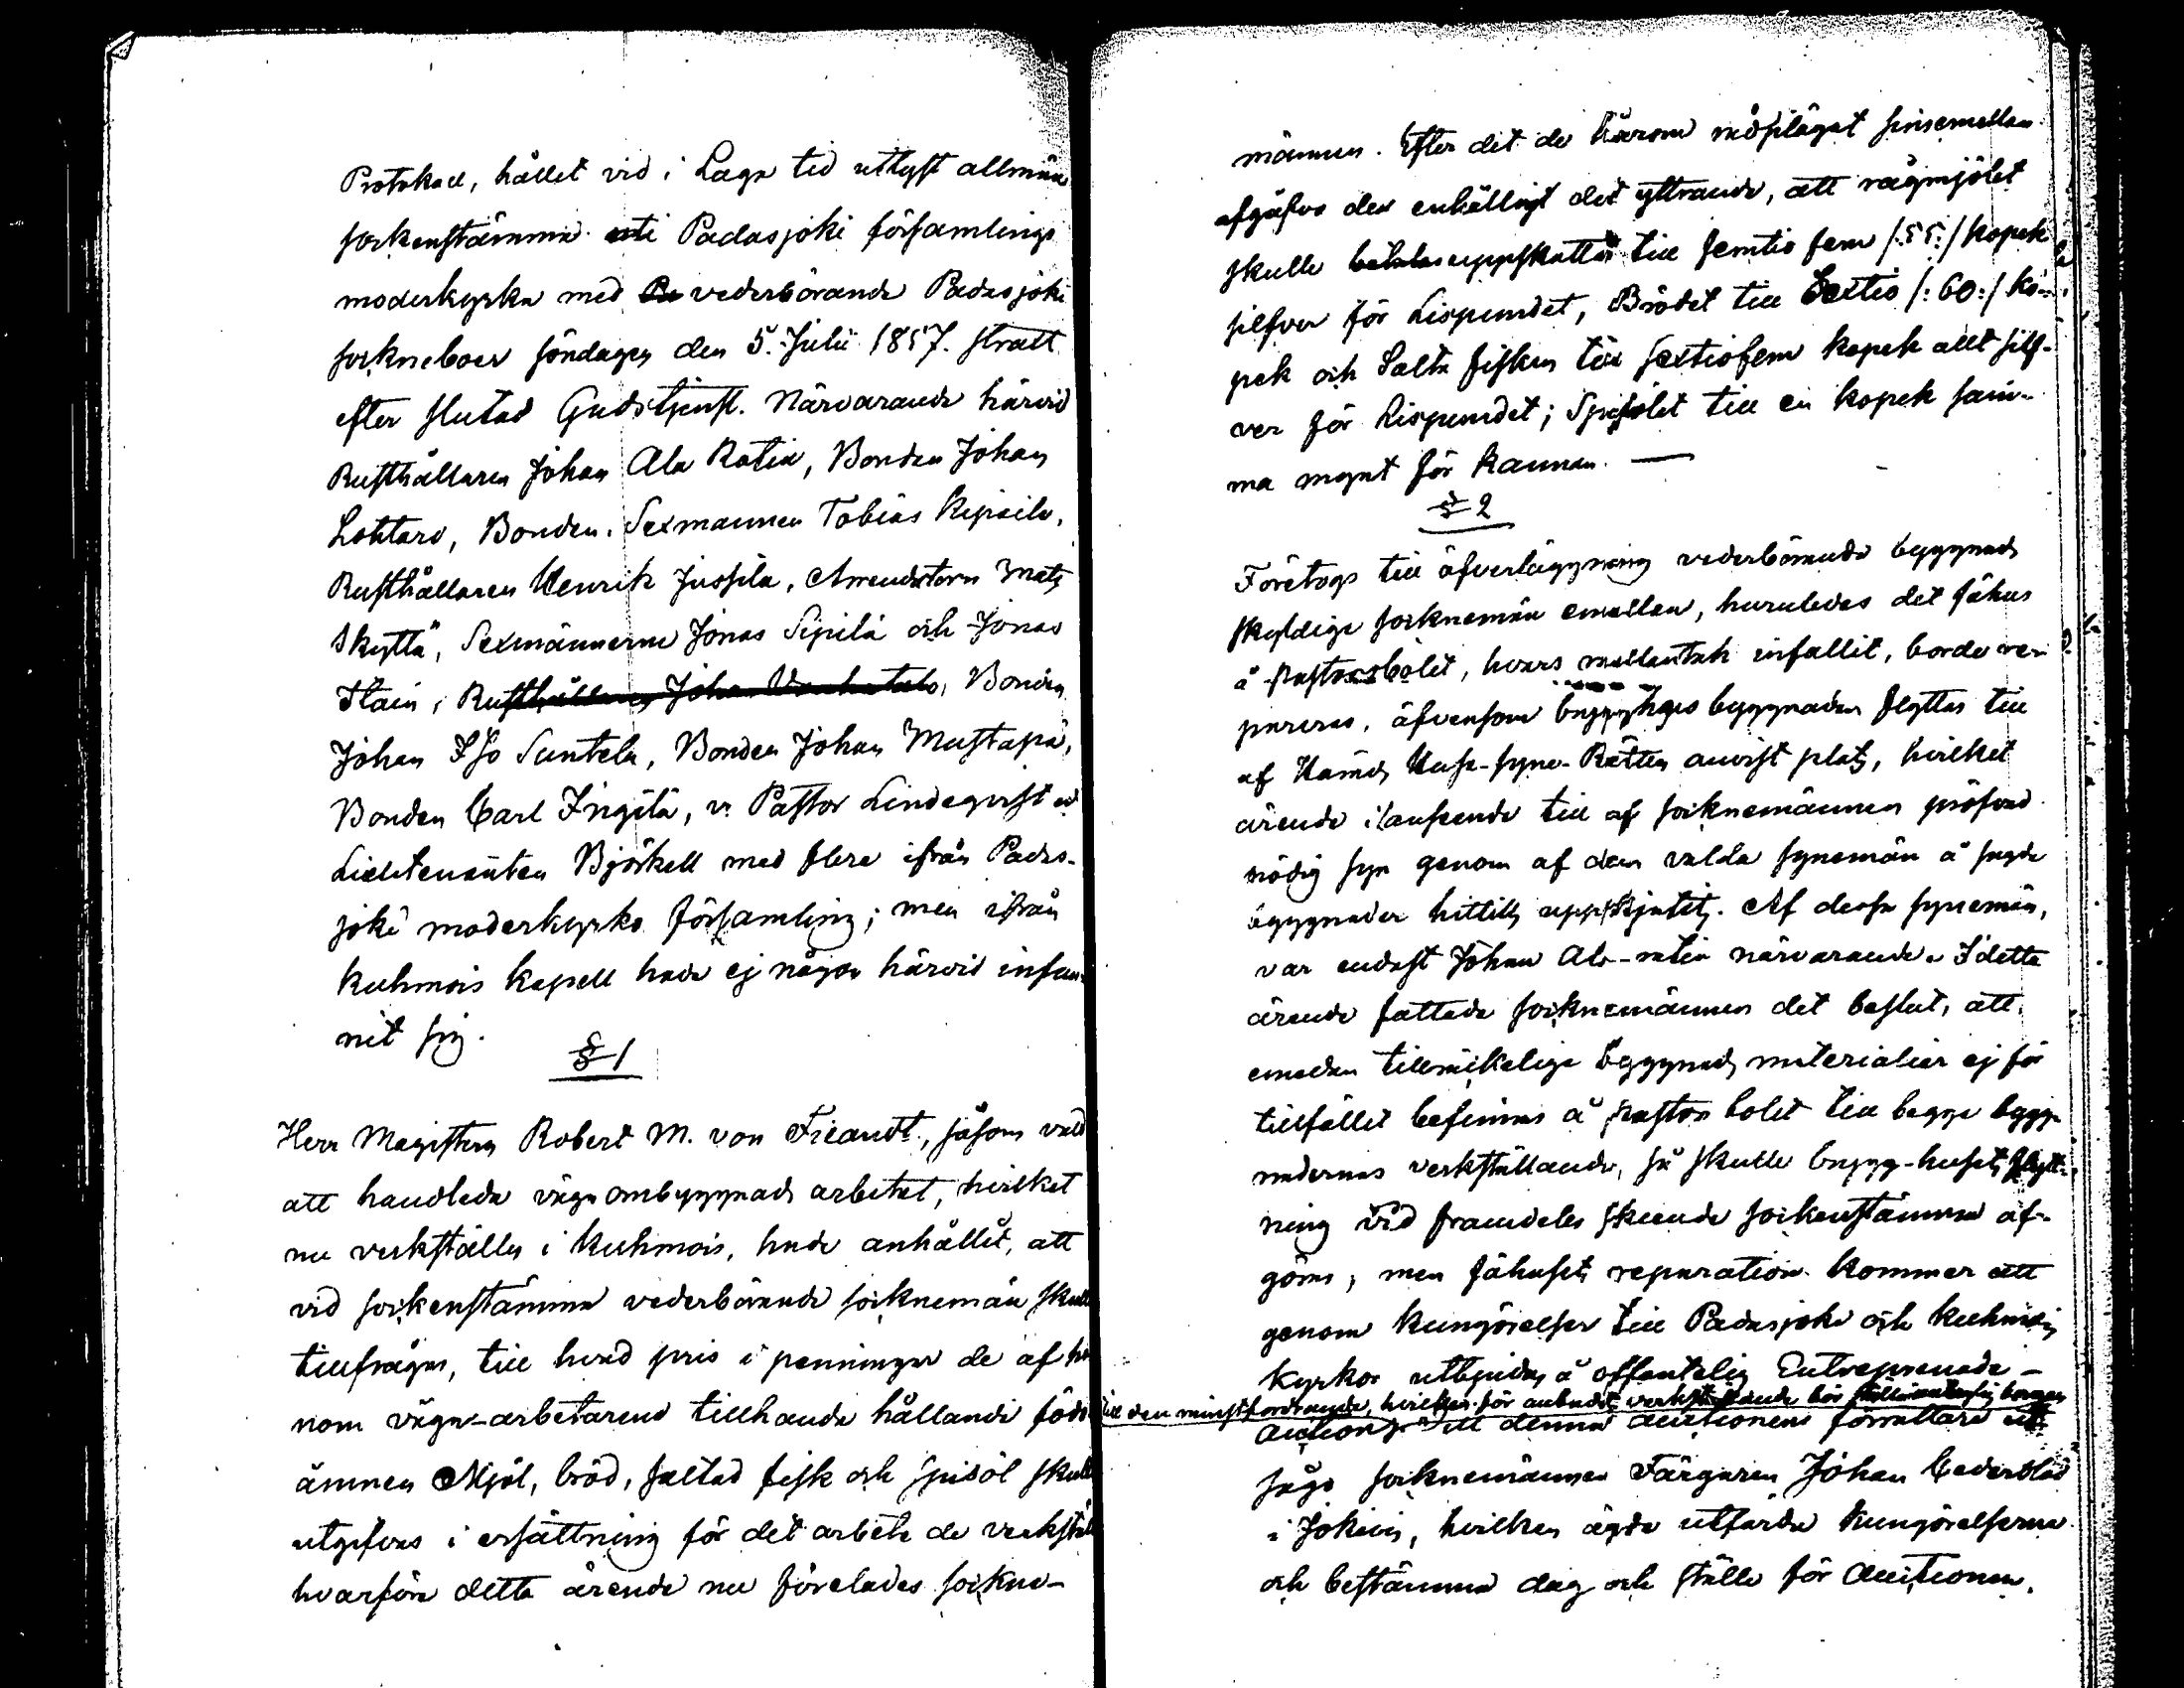 Protokoll, hållet vid i Laga tid utlyst allmän
sockenstämma uti Padasjoki församlings
moderkyrka med vederbörande Padasjoki
sockneboer söndagen den 5. Julii 1857. strax
efter slutad Gudstjenst. Närvarande härvid
Rusthållaren Johan Ala Ratia, Bonden Johan
Lohtari, Bonden, Sexmannen Tobias
Rusthållaren Henrik Jussila, Arrendatorn Mats
Skyttä, Sexmännerne Jonas Sipilä och Jonas
Stain, Rusthållaren Johan Vanhatalo, Bonden
Johan Iso Suntela, Bonden Johan Mustapä,
Bonden Carl Ingilä, v. Pastor Lindeqvist
Lieutenanten Björkell med flere ifrån Padas-
joki moderkyrko församling; men ifrån
Kuhmois kapell hade ej någon härvid infun-
nit sig.
§ 1
Herr Magistern Robert M. von Fieandt, såsom vald
att handleda vägaombyggnads arbetet, hvilket
nu verkställes i Kuhmois, hade anhållit, att
vid sockenstämma vederbörande socknemän skulle
tillfrågas, till hvad pris i penningar de af ho
nom väga-arbetarene tillhanda hållande födo
ämnen Mjöl, bröd, saltad fisk och spisöl skulle
utgifvas i ersättning för det arbete de verkstäl
hvarföre detta ärende nu förelades sockne-
männen. Efter det de härom rådplägat sinsemellan
afgåfvo des enhälligt det yttrande, att rågmjölet
skulle betalas uppskattas till femtio fem /:55:/ kopek
silfver för Lispundet, Brödet till Sextio /:60:/ ko-
pek och Salta fisken till sextiofem kopek allt silf-
ver för Lispundet; Spisölet till en kopek sam-
ma mynt för kannan. —
§ 2
Företogs till öfverläggning vederbörande byggnads
skyldige socknemän emellan, huruledes det fähus
å Pastorsbolet, hvars mellantak infallit, borde re-
pareras, äfvensom byggnaden flyttas till
af Härads Huse-syne-Rätten anvist plats, hvilket
ärende i anseende till af socknemännen pröfvad
nödig syn genom af dem valda synemän å sagde
byggnader hittills uppskjutits. Af dessa synemän,
var endast Johan Ala-ratia närvarande. I detta
ärende fattade socknemännen det beslut, att,
emedan tillräckelige byggnads materialier ej för
tillfället befinnas å pastors bolet till begge bygg-
nadernas verkställande, så skulle brygg-husets flytt-
ning vid framdeles skeende sockenstämma af-
göras, men fähusets reparation kommer att
genom kungörelser till Padasjoki och Kuhmois
kyrkor utbjudas å offentelig Entreprenade-
till den minstfordrande, hvilken för anbudets verkställande bör ställa borgen
auction. Till denna auctionens förrättare ut
sågo socknemännen Färgaren Johan Cederblad
i Jokiois, hvilken ägde utfärda kungörelserne
och bestämma dag och ställe för auctionen.